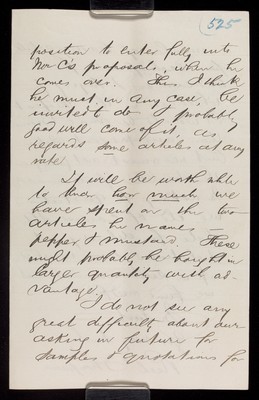 525
position to enter fully into
Mr C's proposals, when he
comes over. This I think
he must in any case, be
invited to do & probably
good will come of it, as
regards some articles at any
rate
It will be worth while
to know how much we
have spent on the two
articles he names
pepper & mustard. These
might probably be bought in
larger quantity with ad-
vantage.
I do not see any
great difficulty about our
asking in future for
samples & quotations for